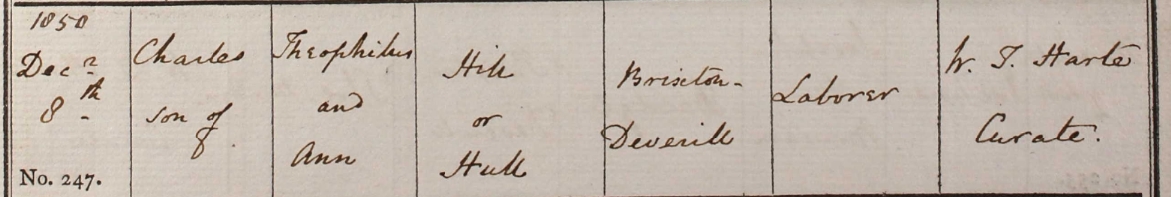 1850
Decr.
8th.
No. 247.
Charles
son of
Theophilus
and
Ann
Hill
or
Hull
Brixton-
Deverill
Laborer
W. T. Harte
Curate.